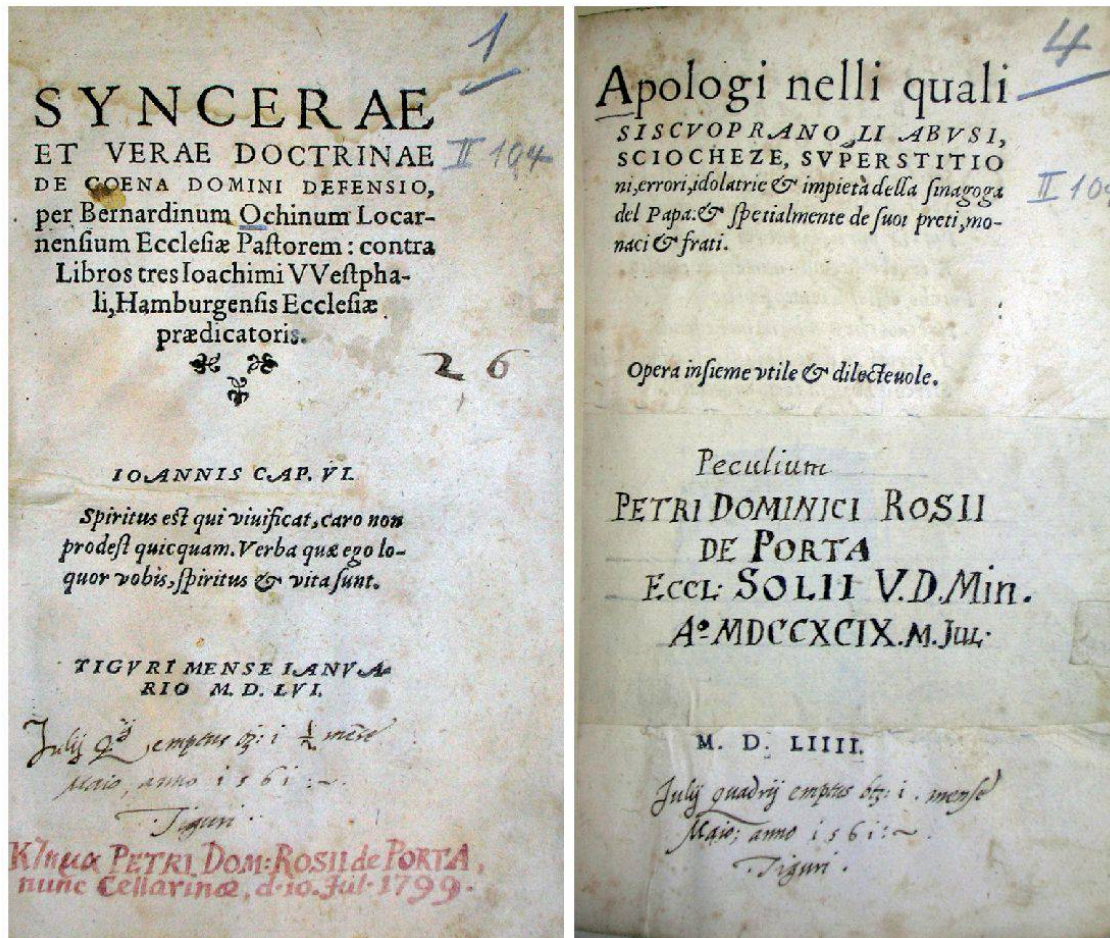 1
SYNCERAE
ET VERAE DOCTRINAE
II 104
DE COENA DOMINI DEFENSIO,
per Bernardinum Ochinum Locar-
nensium Ecclesiæ Pastorem: contra
Libros tres Ioachimi VVestpha-
li, Hamburgensis Ecclesiæ
prædicatoris.
26
IOANNIS CAP. VI.
Spiritus est qui viuificat, caro non
prodest quicquam. Verba quæ ego lo-
quor vobis, spiritus & vita sunt.
TIGVRI MENSE IANVA-
RIO M. D. LVI.
Julij emptus i ½ mense
Maio, anno 1561:~.
Tiguri.
Κῆμα PETRI DOM: ROSII de PORTA,
nunc Cellarinæ, d. 10. Jul. 1799.
4
Apologi nelli quali
SISCVOPRANO, LI ABVSI,
SCIOCHEZE, SVPERSTITIO
ni, errori, idolatrie & impietà della sinagoga
II 10
del Papa. & spetialmente de suoi preti, mo-
naci & frati.
Opera insieme vtile & dilecteuole.
Peculium
PETRI DOMINICI ROSII
DE PORTA
ECCL: SOLII V.D.Min.
Aº MDCCXCIX. M. JUL.
M. D. LIIII.
Julij quadrij emptus btz: i. mense
Maio; anno 1561:~.
Tiguri.